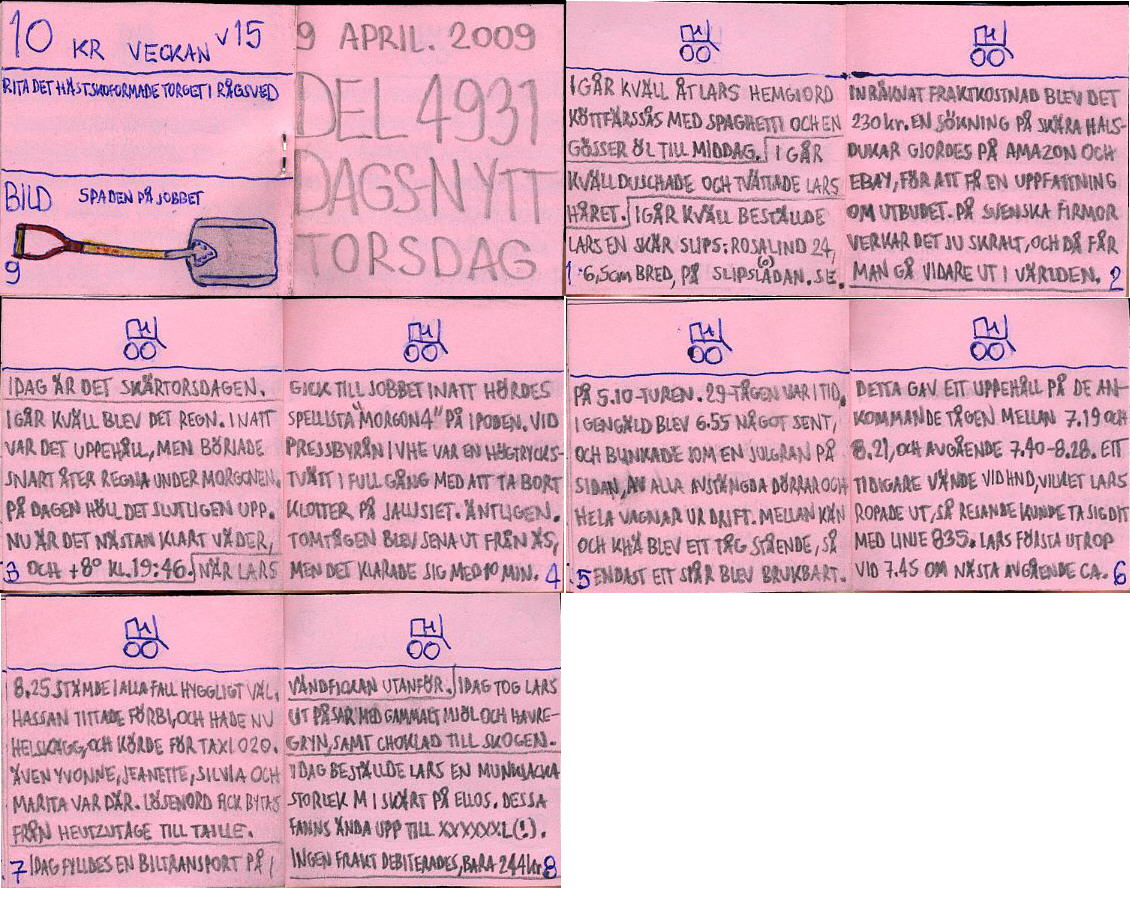 10 KR VECKAN V15
RITA DET HÄSTSKOFORMADE TORGET I RÅGSVED
BILD SPADEN PÅ JOBBET
9
9 APRIL. 2009
DEL 4931
DAGS-NYTT
TORSDAG
I GÅR KVÄLL ÅT LARS HEMGJORD
KÖTTFÄRSSÅS MED SPAGHETTI OCH EN
GÖSSER ÖL TILL MIDDAG. I GÅR
KVÄLL DUSCHADE OCH TVÄTTADE LARS
HÅRET. IGÅR KVÄLL BESTÄLLDE
LARS EN SKÄR SLIPS: ROSALIND 24,
6,5cm BRED, PÅ SLIPSLÅDAN.SE.
(O)
1
INRÄKNAT FRAKTKOSTNAD BLEV DET
230 kr. EN SÖKNING PÅ SKÄRA HALS-
DUKAR GJORDES PÅ AMAZON OCH
EBAY, FÖR ATT FÅ EN UPPFATTNING
OM UTBUDET. PÅ SVENSKA FIRMOR
VERKAR DET JU SKRALT, OCH DÅ FÅR
MAN GÅ VIDARE UT I VÄRLDEN. 2
IDAG ÄR DET SKÄRTORSDAGEN.
I GÅR KVÄLL BLEV DET REGN. I NATT
VAR DET UPPEHÅLL, MEN BÖRJADE
SNART ÅTER REGNA UNDER MORGONEN.
PÅ DAGEN HÖLL DET SLUTLIGEN UPP.
NU ÄR DET NÄSTAN KLART VÄDER,
3 OCH +8° KL.19:46. NÄR LARS
GICK TILL JOBBET INATT HÖRDES
SPELLISTA "MORGON4" PÅ IPODEN. VID
PRESSBYRÅN I VHE VAR EN HÖGTRYCKS-
TVÄTT I FULL GÅNG MED ATT TA BORT
KLOTTER PÅ JALUSIET. ÄNTLIGEN.
TOMTÅGEN BLEV SENA UT FRÅN ÄS,
MEN DET KLARADE SIG MED 10 MIN. 4
PÅ 5.10-TUREN. 29-TÅGEN VAR I TID,
I GENGÄLD BLEV 6.55 NÅGOT SENT,
OCH BLINKADE SOM EN JULGRAN PÅ
SIDAN, AV ALLA AVSTÄNGDA DÖRRAR OCH
HELA VAGNAR UR DRIFT. MELLAN KÄN
OCH KHÄ BLEV ETT TÅG STÅENDE, SÅ
5 ENDAST ETT SPÅR BLEV BRUKBART.
DETTA GAV ETT UPPEHÅLL PÅ DE AN-
KOMMANDE TÅGEN MELLAN 7.19 OCH
8.21, OCH AVGÅENDE 7.40-8.28. ETT
TIDIGARE VÄNDE VID HND, VILKET LARS
ROPADE UT, SÅ RESANDE KUNDE TA SIG DIT
MED LINJE 835. LARS FÖRSTA UTROP
VID 7.45 OM NÄSTA AVGÅENDE CA. 6
8.25 STÄMDE I ALLA FALL HYGGLIGT VÄL.
HASSAN TITTADE FÖRBI, OCH HADE NU
HELSKÄGG, OCH KÖRDE FÖR TAXI 020.
ÄVEN YVONNE, JEANETTE, SILVIA OCH
MARITA VAR DÄR. LÖSENORD FICK BYTAS
FRÅN HEUTZUTAGE TILL TAILLE.
7 IDAG FYLLDES EN BILTRANSPORT PÅ I
VÄNDFICKAN UTANFÖR. IDAG TOG LARS
UT PÅSAR MED GAMMALT MJÖL OCH HAVRE-
GRYN, SAMT CHOKLAD TILL SKOGEN.
IDAG BESTÄLLDE LARS EN MUNKJACKA
STORLEK M I SKÄRT PÅ ELLOS. DESSA
FANNS ÄNDA UPP TILL XXXXXXL(!).
INGEN FRAKT DEBITERADES, BARA 244kr. 8